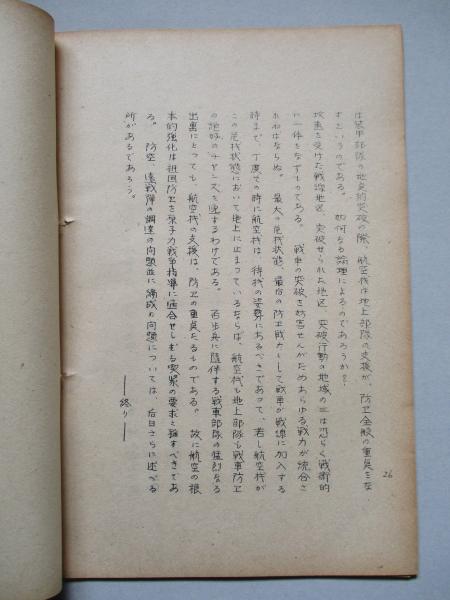 は装甲部隊の地点的突破の際、航空機は地上部隊の支援が、防卫全般の重点をな
すというのである。 如何なる論理によるのであろうか?
攻撃を受けた戦線地区、突破せられた地区、突破行動の地域の三は恐らく戦術的
に一体をなすものである。 戦車の突破を妨害せんがためあらゆる戦力が統合さ
れねばならぬ。 最大の危機状態、最后の防卫戦力として戦車が戦線に加入する
時まで、丁度その時に航空機は、待機の姿勢にあるべきであって、若し航空機が
この危機状態において地上に止まっているならば、航空機も地上部隊も戦車防卫
の絶好のチャンスを逸するわけである。 否歩兵に随伴する戦車部隊の猛烈なる
出書にとっても、航空機の支援は、防卫の重点たるものである。 故に航空の根
本的強化は祖国防卫を原子力戦争指導に適合せしむる喫緊の要求と称すべきであ
る。 防空、遠戦弾の調達の問題並に編成の問題については、后日さらに述べる
所があるであろう。
――終り――
26